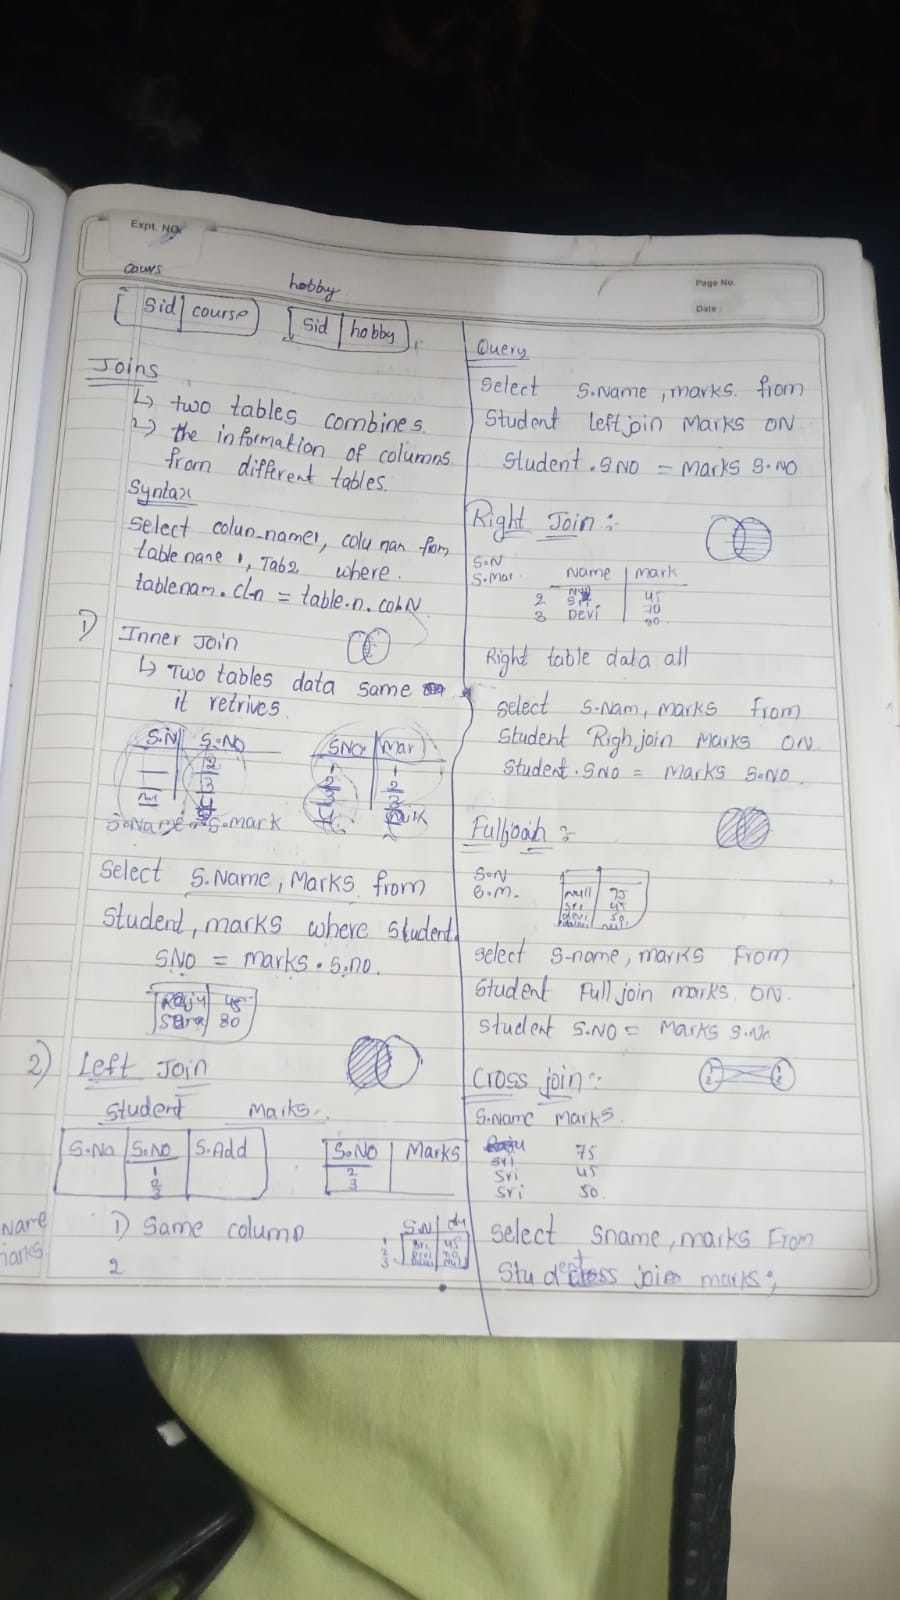 Expt. No.
Page No.
Date :
cours
Sid course
hobby
Sid hobby
Joins
↳ two tables combines.
2→ the information of columns
from different tables.
Syntax
select colun_name1, colu nan from
table name 1, Tab2 where.
tablenam.cl-n = table.n.colN
1) Inner Join
↳ Two tables data same
it retrives
S.N S.NO
2
3
SNO Mar
S.Name S.mark
Select S.Name, Marks from
Student, marks where Student.
SNO = marks.S.no.
Raju 45
80
2) Left Join
Student Marks.
S.Na S.NO S.Add
1
2
3
S.NO Marks
2
3
Name
marks
1) Same column
2
S.N
1
2
3
Query
Select S.Name, marks. from
Student left join Marks ON
Student.SNO = Marks S.NO
Right Join :-
S.N
S.Mar.
Name mark
45
2 Sri 70
3 Devi 80
Right table data all
select S.Nam, marks from
Student Righ join Marks ON
Student.SNO = Marks S.NO.
Full join :-
S.N
S.M.
null 75
Sri 45
devi 50
null
select S-name, marks From
Student Full join marks. ON.
Student S.NO = Marks S.N
Cross join :-
S.Name Marks
75
Sri 45
Sri 50
Select Sname, marks From
Student cross join marks;